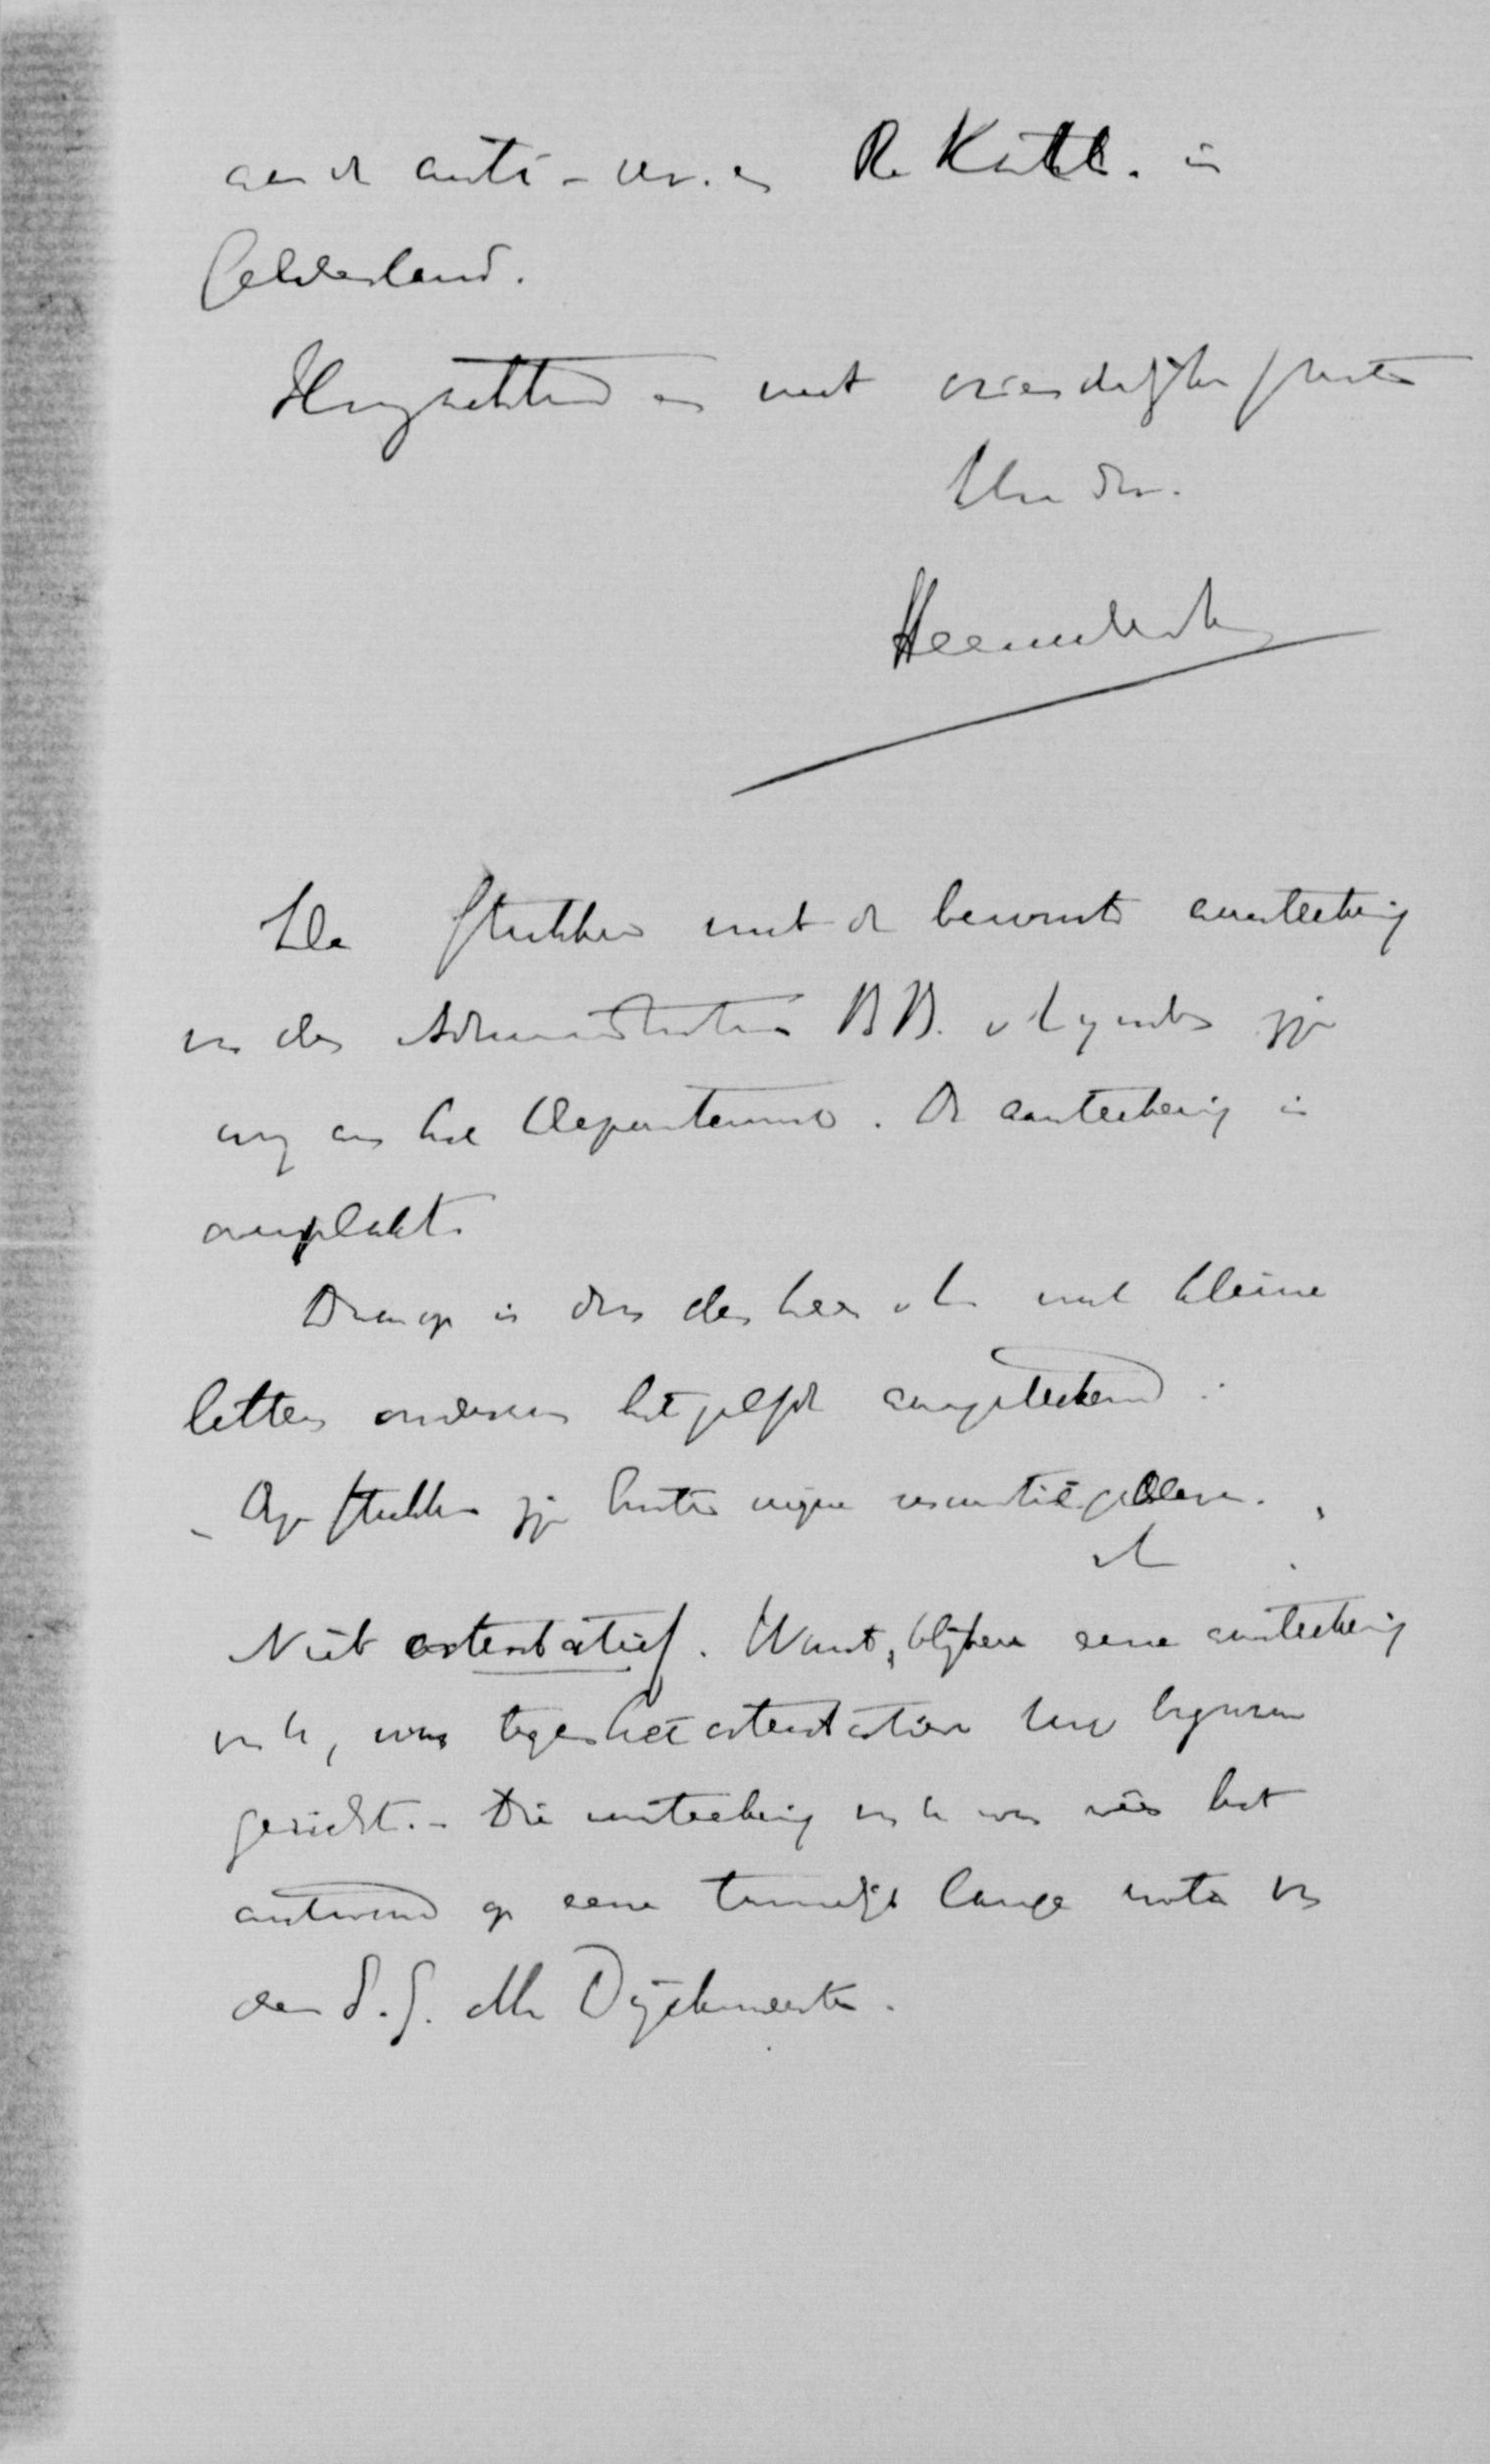 aan de anti-rev. en R. Kath. in
Gelderland.
Hoogachtend en met vriendelijke groete
Uw dr.
Heemskerk
De stukken met de bewuste aanteekening
van den Administrateur BB. v L zijn
nog aan het Departement. De aanteekening is
overplakt.
Daarop is door den heer v L met kleine
letters onder het aangeteekend:
stukken zijn buiten mijne gebleven.
v L
Niet ostentatief. Want, blijkens eene aanteekening
v L, was tegen het ostentatieve
gericht. - Die aanteekening v L was het
antwoord op eene tamelijk lange nota van
den S.G. Mr Dijckmeester.